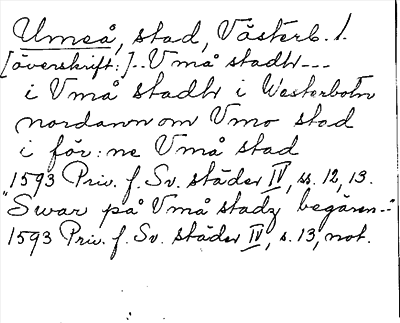 Umeå, stad, Västerb. l.
[överskrift:]--Vmå stadh---
i Vmå stadh i Westerbotn
nordann om Vmo stad
i för:ne Vmå stad
1593 Priv. f. Sv. städer IV, ss. 12, 13.
"Swar på Vmå stadz begären--"
1593 Priv. f. Sv. städer IV, s. 13, not.